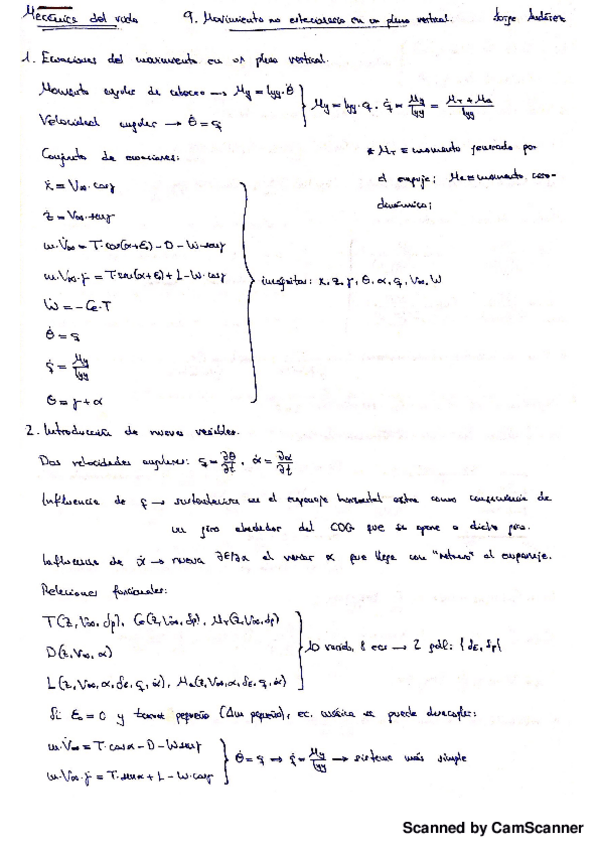 Mecánica del vuelo 9. Movimiento no estacionario en un plano vertical. Jorge
1. Ecuaciones del movimiento en un plano vertical.
Momento angular de cabeceo → My = Iyy·θ̈
Velocidad angular → θ̇ = q
My = Iyy·q̇. q̇ = My/Iyy = (M_T + Ma)/Iyy
Conjunto de ecuaciones:
* M_T ≡ momento generado por
el empuje; Ma ≡ momento aero-
dinámico;
ẋ = V∞·cosγ
ż = V∞·senγ
m·V̇∞ = T·cos(α+ε₀) - D - W·senγ
m·V∞·γ̇ = T·sen(α+ε₀) + L - W·cosγ
Ẇ = -Ce·T
θ̇ = q
q̇ = My/Iyy
θ = γ + α
incógnitas: x, z, γ, θ, α, q, V∞, W
2. Introducción de nuevas variables.
Dos velocidades angulares: q = ∂θ/∂t, α̇ = ∂α/∂t
Influencia de q → sustentación en el empenaje horizontal extra como consecuencia de
un giro alrededor del COG que se opone a dicho giro.
Influencia de α̇ → nueva ∂ε/∂α al variar α que llega con "retraso" al empenaje.
Relaciones funcionales:
T(z, V∞, δp), Ce(z, V∞, δp), M_T(z, V∞, δp)
D(z, V∞, α)
L(z, V∞, α, δE, q, α̇), Ma(z, V∞, α, δE, q, α̇)
10 variab, 8 ecs → 2 gdl: {δE, δp}
Si ε₀ = 0 y pequeño (Δm pequeño), ec. másica se puede desacoplar:
m·V̇∞ = T·cosα - D - W·senγ
m·V∞·γ̇ = T·senα + L - W·cosγ
θ̇ = q ⇒ q̇ = My/Iyy → sistema más simple
Scanned by CamScanner